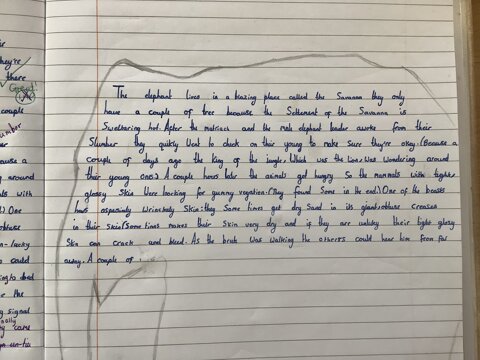 The elephant lives in a blazing place called the Savanna they only
have a couple of tree because the Settlement of the Savanna is
Sweltering hot. After the matriach and the male elephant leader awoke from their
Slumber they quikly Went to check on their young to make Sure they're okay. (Because a
couple of days ago the king of the Jungle, Which was the Lion was Wondering around
their young ones) A couple hours later the animals got hungry So the mammals with tighter
glossy Skin Were looking for yummy vegetion. (They found Some in the end) One of the beasts
had especialy Wrienkely Skin: they Some times get dry Sand in its giant obtuse creases
in their Skin. (Some times makes their Skin very dry and if they are unlucky their tight glosy
Skin can crack and bleed. As the brute was walking the others could hear him from far
away. A couple of
they're
there
Great!
couple
slumber
cause a
around
with
) One
obtuse
un-lucky
could
the
signal
came